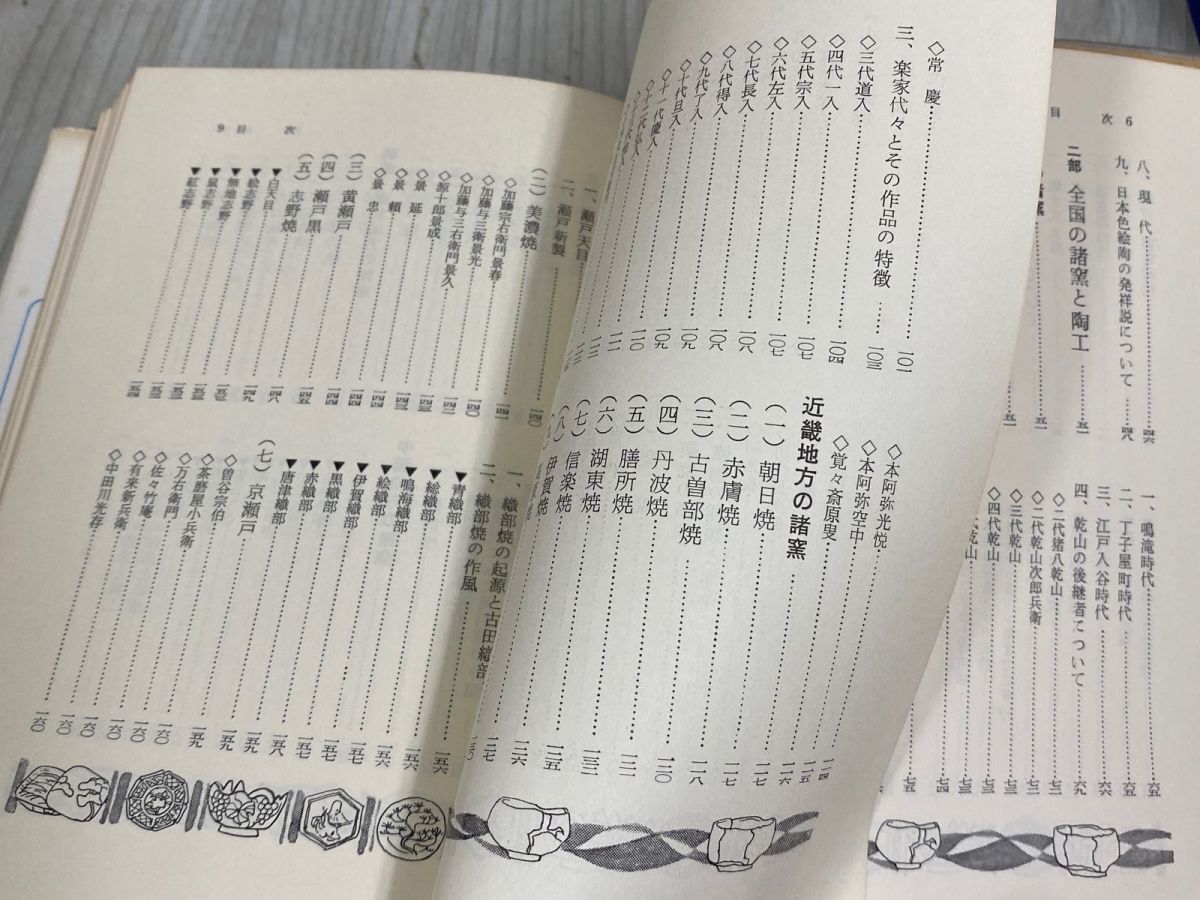 目 次 6
八、現 代……四六
九、日本色絵陶の発祥説について……四八
二部 全国の諸窯と陶工……五一
一、鳴滝時代……六五
二、丁子屋町時代……六五
三、江戸入谷時代……六六
四、乾山の後継者について……六九
◇二代猪八乾山……七二
◇二代乾山次郎兵衛……七二
◇三代乾山……七三
◇四代乾山……七三
◇常 慶……一〇一
三、楽家代々とその作品の特徴……一〇三
◇三代道入……一〇四
◇四代一入……一〇七
◇五代宗入……一〇七
◇六代左入……一〇八
◇七代長入……一〇八
◇八代得入……一〇九
◇九代了入……一〇九
◇十代旦入
◇十一代慶入
◇本阿弥光悦……一一四
◇本阿弥空中……一一五
◇覚々斎原叟……一一六
近畿地方の諸窯……一一七
(一)朝日焼……一一七
(二)赤膚焼……一一七
(三)古曽部焼……一一八
(四)丹波焼……一二〇
(五)膳所焼……一二一
(六)湖東焼……一二三
(七)信楽焼……一二五
(八)伊賀焼……一二六
9 目 次
一、瀬戸天目
二、瀬戸新製
(二)美濃焼……一四〇
◇加藤宗右衛門景春……一四一
◇加藤与三衛景光……一四〇
◇加藤与三右衛門景久……一四二
◇源十郎景成……一四三
◇景 延……一四三
◇景 頼……一四四
◇景 忠……一四四
(三)黄瀬戸……一四四
(四)瀬戸黒……一四五
(五)志野焼……一四八
▼白天目……一四九
▼絵志野……一五三
▼無地志野……一五三
▼鼠志野……一五三
▼紅志野……一五四
一、織部焼の起源と古田織部
二、織部焼の作風
▼青織部……一五六
▼総織部……一五六
▼鳴海織部……一五六
▼絵織部……一五七
▼伊賀織部……一五七
▼黒織部……一五七
▼赤織部……一五八
▼唐津織部……一五九
(七)京瀬戸……一五九
◇曽谷宗伯……一五九
◇茶磨屋小兵衛……一六〇
◇万右衛門……一六〇
◇佐々竹庵……一六〇
◇有来新兵衛……一六〇
◇中田川光存……一六〇